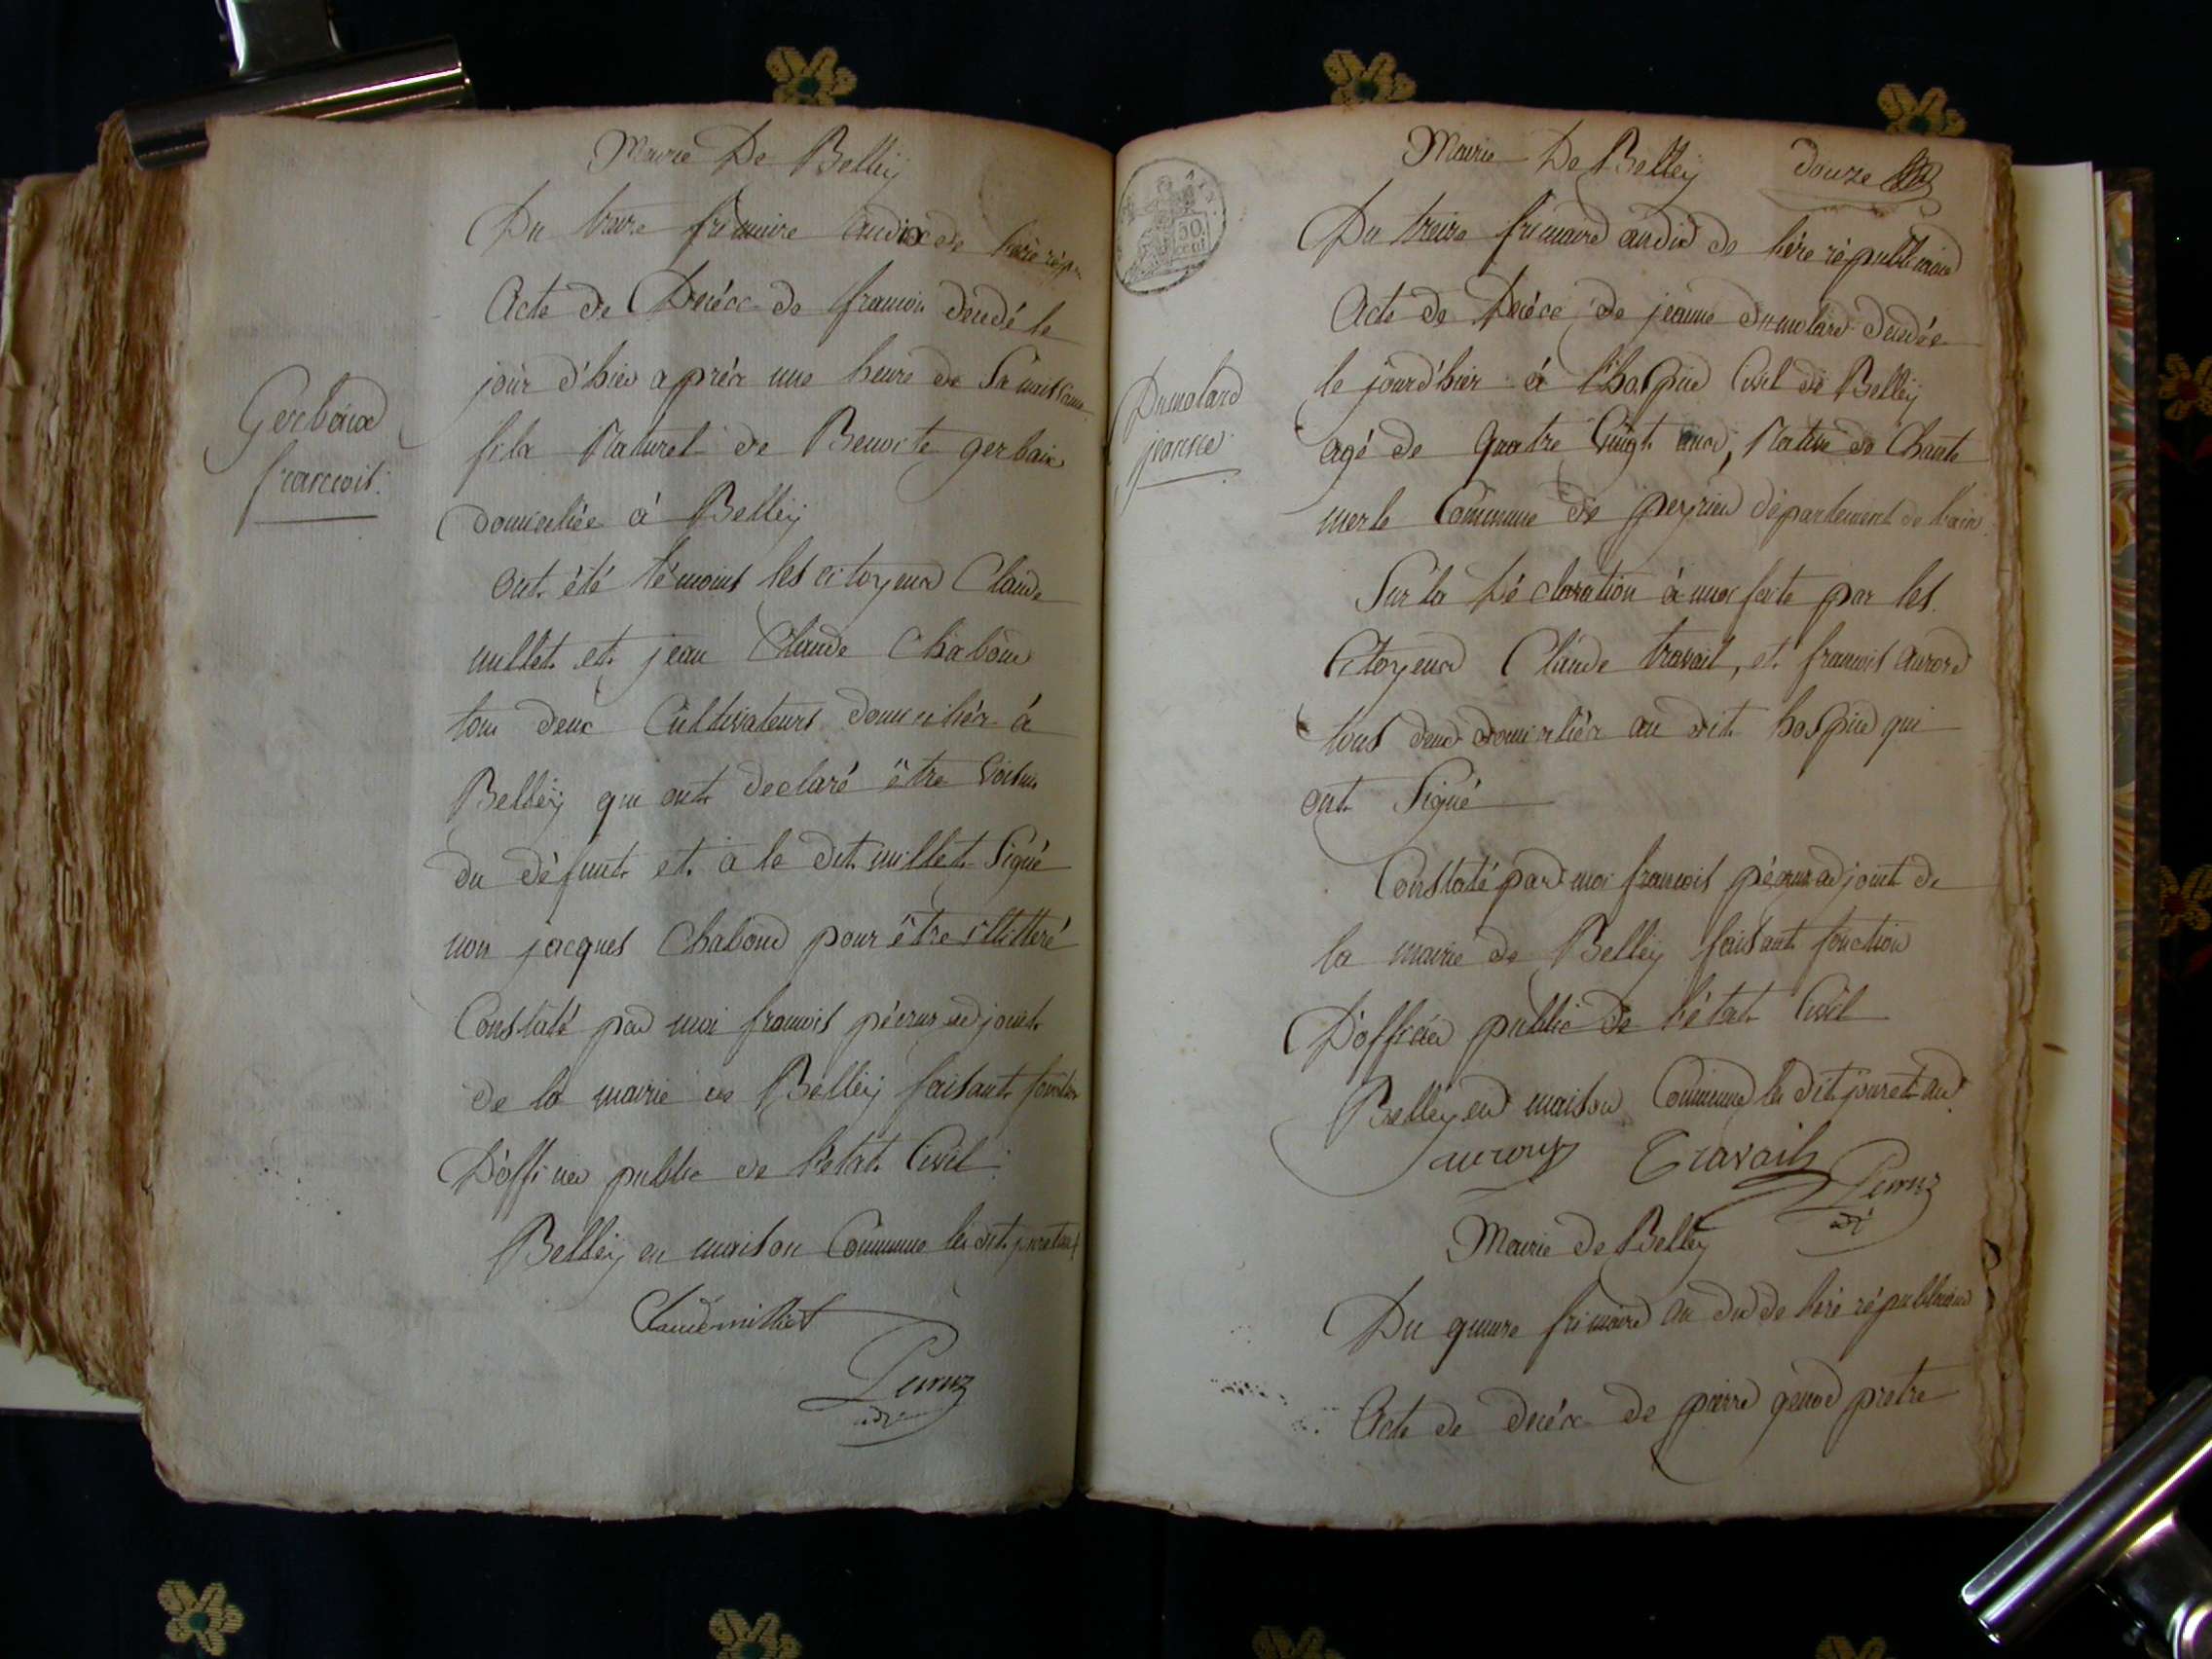 Mairie De Belleÿ
Du treize frimaire an dix de l'ère rép
Acte de Décéx de francois décédé le
jour d'hier aprèx une heure de Sa naissance
Gerbaix
filx Naturel de Benoite gerbaix
francois.
domiciliée à Belleÿ
ont été témoins les citoyens Claude
millet et jean Claude Chaboud
tous deux Cultivateurs domiciliéx à
Belleÿ qui ont declaré être voisins
du défunt et a le dit millet Signé
non jacques Chaboud pour être illitteré
Constaté par moi francois adjoint
de la mairie de Belleÿ faisant fonction
D'officier public de l'état Civil
Belleÿ en maison Commune les dit jour et an
Claude milliet
adt
Mairie De Belleÿ douze
50 cent
Du treize frimaire an dix de l'ère républicaine
Acte de Décéx de jeanne dumolard décédée
le jour d'hier à l'hospice Civil de Belleÿ
Dumolard
jeanne
agé de quatre vingt ans, Native de Chante
merle Commune de peyrieu département de l'ain
Sur la Déclaration à moi faite par les
Citoyens Claude travail, et francois aurore
tous deux domiciliéx au dit hospice qui
ont Signé
Constaté par moi francois adjoint de
la mairie de Belleÿ faisant fonction
D'officier public de l'état Civil
Belleÿ en maison Commune les dit jour et an
Travail
adt
Mairie de Belleÿ
Du quinze frimaire an dix de l'ère républicaine
Acte de décéx de pierre genod prêtre